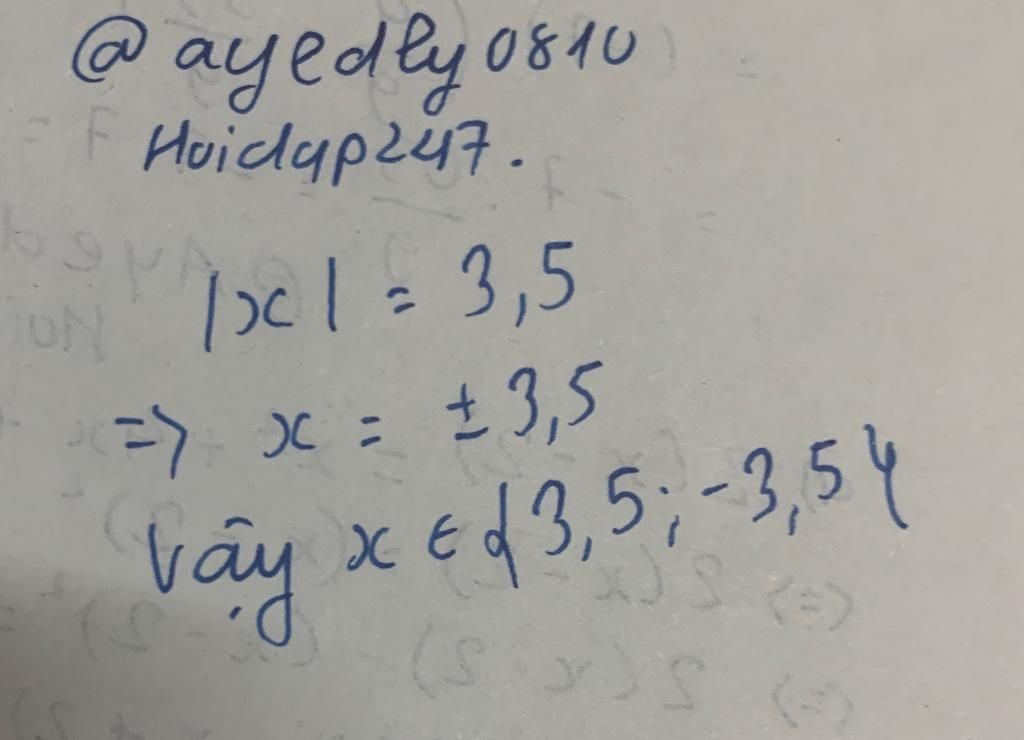 @ayedly0810
Hoidap247.
|x| = 3,5
=> x = ±3,5
Vậy x ∈ {3,5; -3,5}